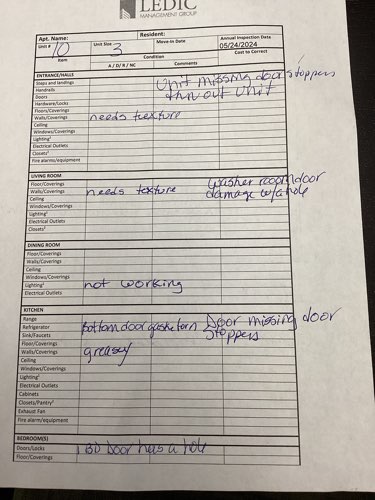 LEDIC
MANAGEMENT GROUP
Apt. Name: Resident:
Unit # 10 Unit Size 3 Move-In Date Annual Inspection Date 05/24/2024
Item Condition Cost to Correct
A / D / R / NC Comments
ENTRANCE/HALLS
Steps and landings Unit missing door stoppers
Handrails thru out unit
Doors
Hardware/Locks
Floors/Coverings
Walls/Coverings needs texture
Ceiling
Windows/Coverings
Lighting²
Electrical Outlets
Closets²
Fire alarms/equipment
LIVING ROOM
Floor/Coverings Washer room door
Walls/Coverings needs texture damage w/a hole
Ceiling
Windows/Coverings
Lighting²
Electrical Outlets
Closets²
DINING ROOM
Floor/Coverings
Walls/Coverings
Ceiling
Windows/Coverings
Lighting² not working
Electrical Outlets
KITCHEN
Range
Refrigerator Bottom door gasket torn Door missing door
Sink/Faucets stoppers
Floor/Coverings
Walls/Coverings greasy
Ceiling
Windows/Coverings
Lighting²
Electrical Outlets
Cabinets
Closets/Pantry²
Exhaust Fan
Fire alarm/equipment
BEDROOM(S)
Doors/Locks 1 BD Door has a hole
Floor/Coverings